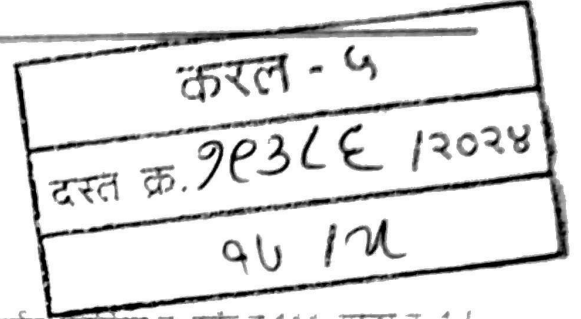 करल - ५
दस्त क्र. १९३८६ /२०२४
१७ /